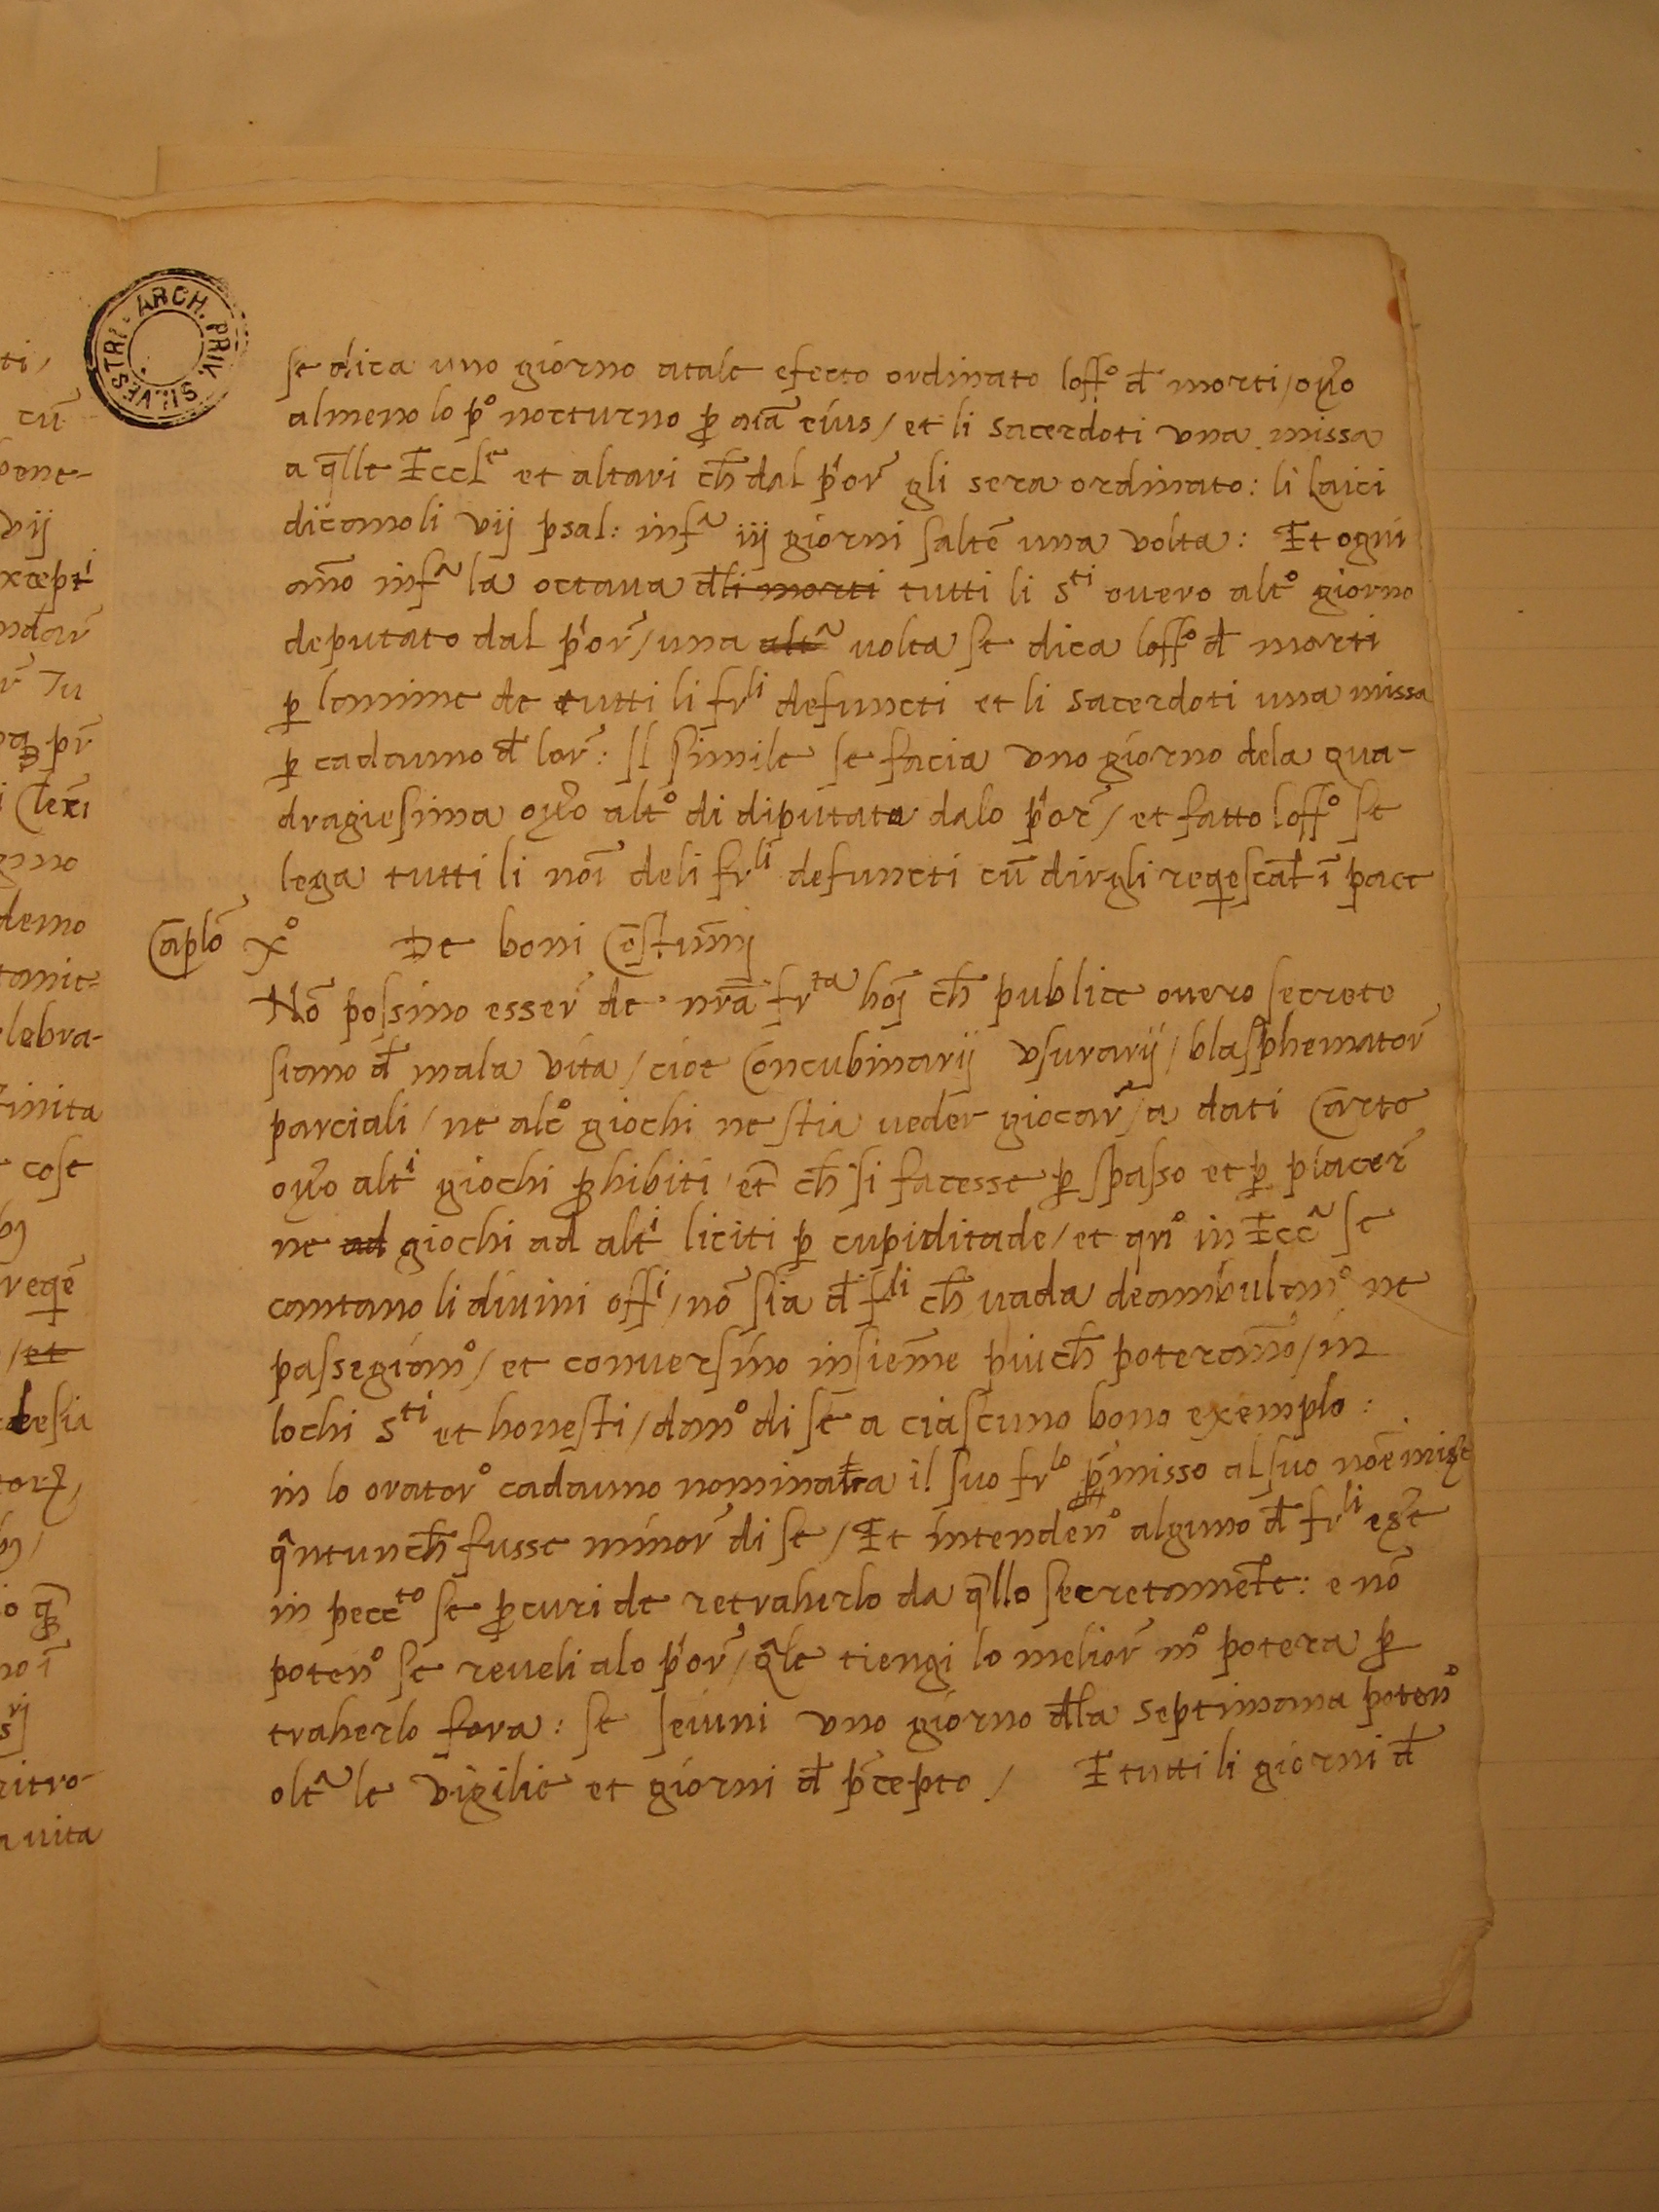 ARCH. PRIV. SILVESTRI
se dica uno giorno atale efecto ordinato loffº đ morti / oṽo
almeno lo pº nocturno ꝑ aiã eius / et li sacerdoti una missa
a q̃lle Eccle et altari ch̄ dal p'or̃ gli sera ordinato: li Laici
dicano li vij psal: infa iij giorni saltẽ una volta: Et ogni
año infa la octava đli morti tutti li sti overo altº giorno
deputato dal p'or̃ / una alta uolta se dica loffº đ morti
ꝑ lanime de tutti li frli defuncti et li sacerdoti una missa
ꝑ cadauno đ lor̃: Il simile se facia uno giorno dela qua-
dragiesima oṽo altº di diputato dalo p'or̃ / et fatto loffº se
lega tutti li noĩ deli frli defuncti cũ dirgli reqescãt ĩ pace
Caplõ Xº De boni Cõstumij
Nõ possino esser̃ de nrã frta hoĩ ch̄ publice overo secreto
siano đ mala vita / cioe Concubinarij usurarij / blasphemator̃
parciali / ne alcº giochi ne stia ueder giocar̃ / a dati Carte
oṽo alti giochi ꝓhibiti / et̃ ch̄ si facesse ꝑ spasso et ꝑ piacer̃
ne ad giochi ad alti liciti ꝑ cupiditade / et qnº in Ecca se
cantano li divini offi / nõ sia đ fli ch̄ uada deambulanº ne
passegianº / et conversino insieme piuch̄ poterano / in
lochi sti et honesti / danº di se a ciascuno bono exemplo:
in lo oratorº cadauno nomina il suo frlo p̃misso al suo nõe
qantunch̄ fusse minor̃ di se / Et intendenº alguno đ frli
in peccto se ꝓcuri de retraherlo da q̃llo secretamẽte: e nõ
potenº se reveli alo p'or̃ / qale tiengi lo melior̃ mº potera ꝑ
traherlo fora: se Jeiuni uno giorno đla septimana potenº
olta le vigilie et giorni đ p̃cepto / E tutti li giorni đ